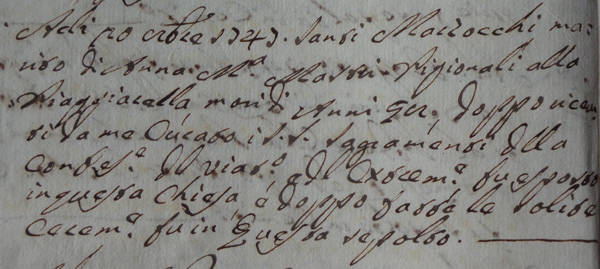 Adi 20 ottobre 1747. Santi Mazzocchi ma-
rito di Anna M.ª Massi Pigionali alla
Piaggiarella morì di Anni 62. doppo ricevu-
ti da me Curato i S.S. Sagramenti della
Confes.e del Viat.o e dell Estrem.e fu esposto
in questa Chiesa e doppo fatte le solite
Cerem.e fu in Questa sepolto.